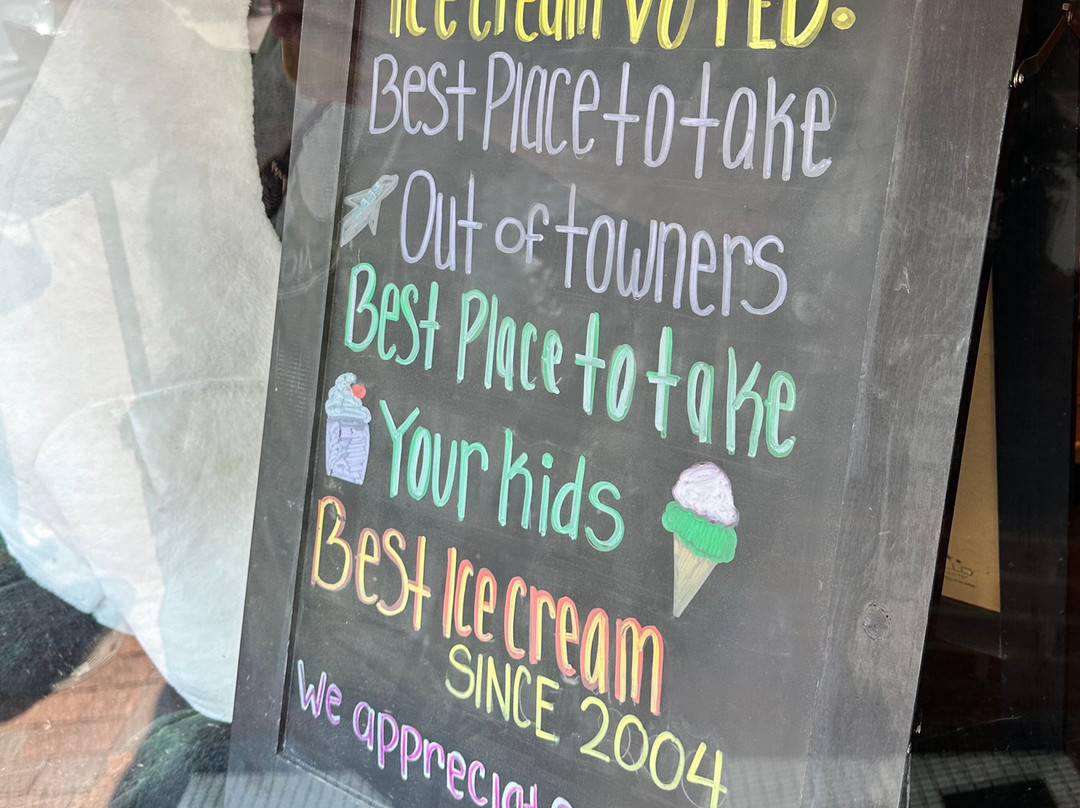 Ice cream VOTED:
Best Place to take
Out of towners
Best Place to take
Your kids
Best Ice cream
SINCE 2004
We appreciate